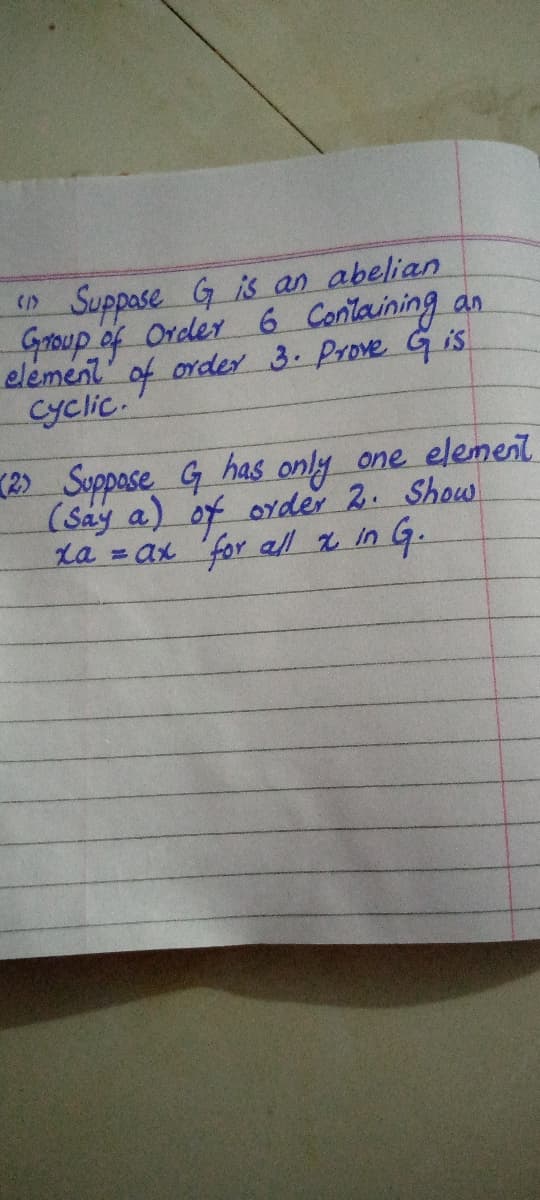 (1) Suppose G is an abelian
Group of Order 6 Containing an
element of order 3. Prove G is
cyclic.
(2) Suppose G has only one element
(Say a) of order 2. Show
xa = ax for all x in G.